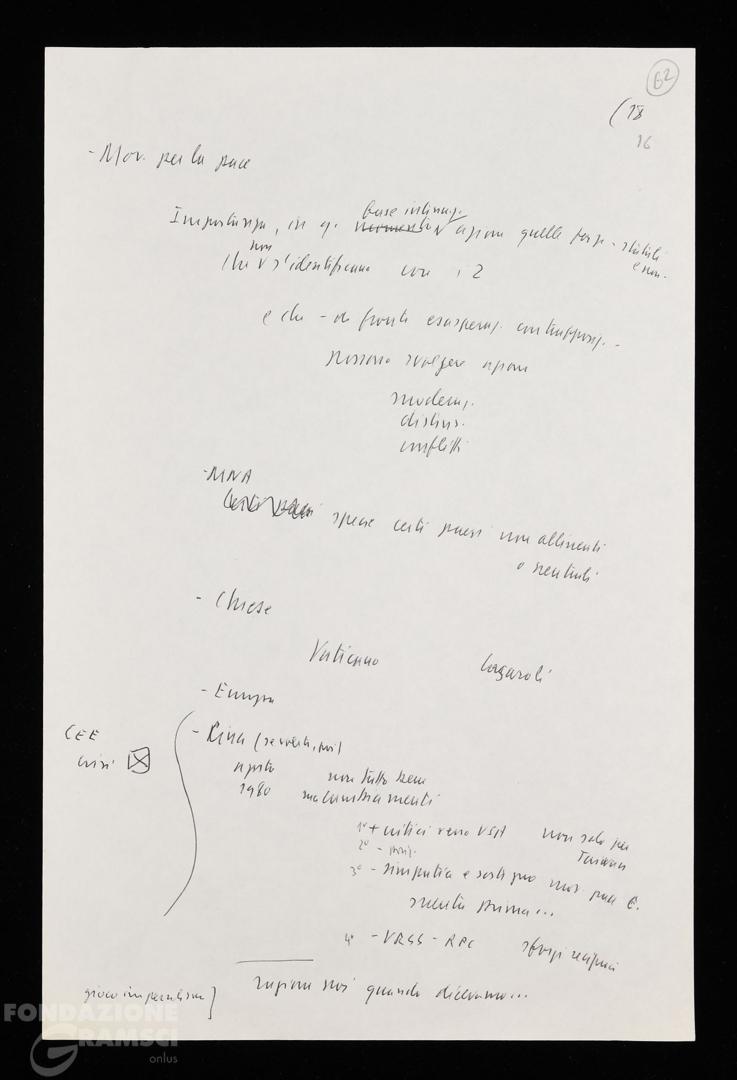 62
(18
16
- Mov. per la pace
base intinaz.
Importanza, in q. azione quelle forze - statali
e non -
che non s'identificano con i 2
e che - di fronte esasperaz. contrappos. -
possono svolgere azione
moderaz.
distens.
conflitti
- MNA
specie certi paesi non allineati
o neutrali
- Chiese
Vaticano Casaroli
- Europa
CEE
crisi
- Cina
agosto
1980
non tutto bene
ma cambiamenti
1° + critici verso USA non solo per
Taiwan
2° -
3° - simpatia e sostegno mov. pace E.
mentre prima...
4° - URSS - RPC sforzi reciproci
gioco imperialismo]
ragione noi quando dicevamo...
FONDAZIONE
GRAMSCI
onlus